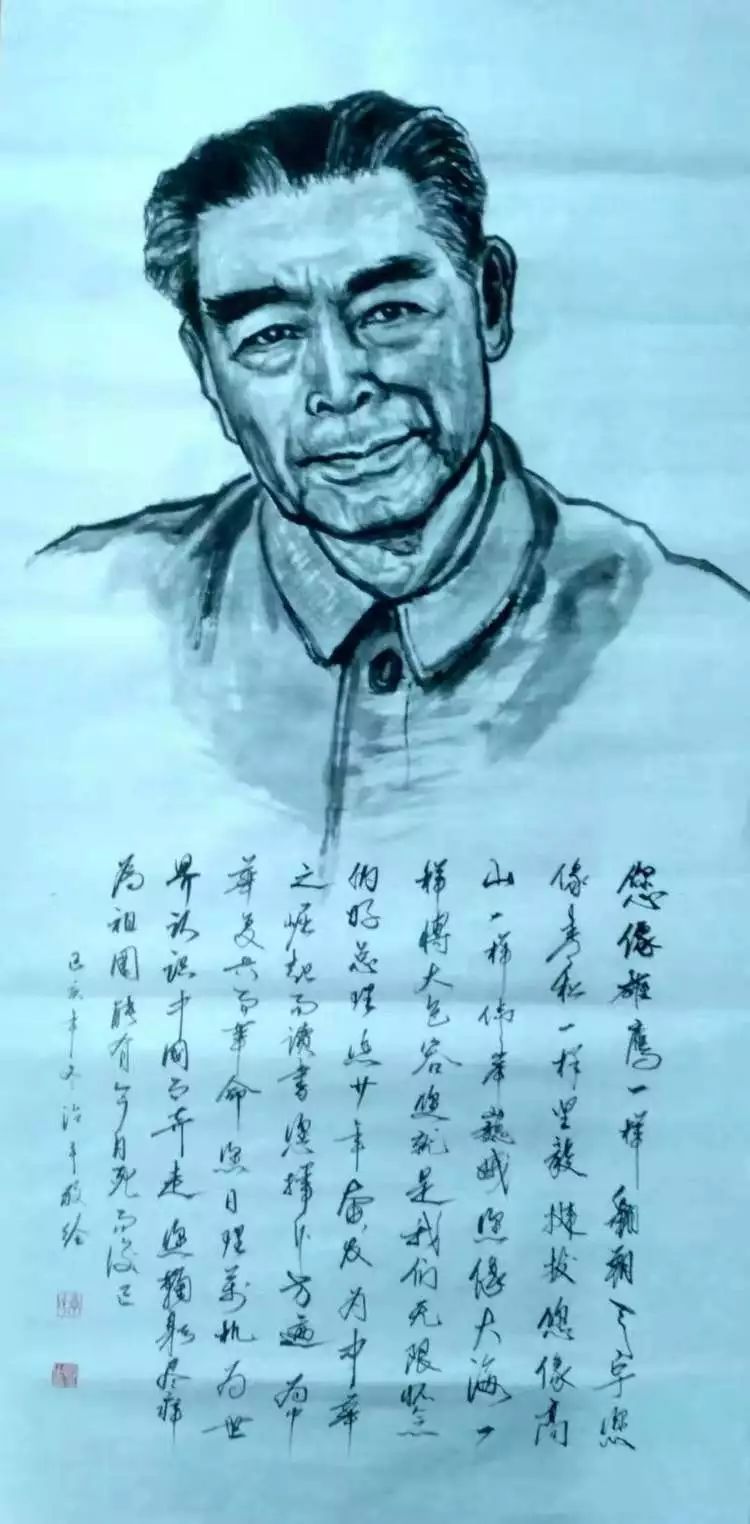 您像雄鹰一样翱翔天宇您
像青松一样坚毅挺拔您像高
山一样伟岸巍峨您像大海一
样博大包容您就是我们无限怀念
的好总理您廿年奋发为中华
之崛起而读书您挥斥方遒为中
华复兴而革命您日理万机为世
界认识中国而奔走您鞠躬尽瘁
为祖国能有今日死而后已
己亥年冬治平敬绘